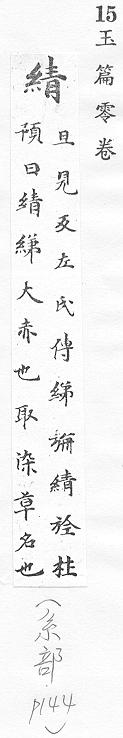 15 玉篇零卷
綪
旦見反左氏傳綈旃綪旍杜
預曰綪綈大赤也取染草名也
(糸部 p144)